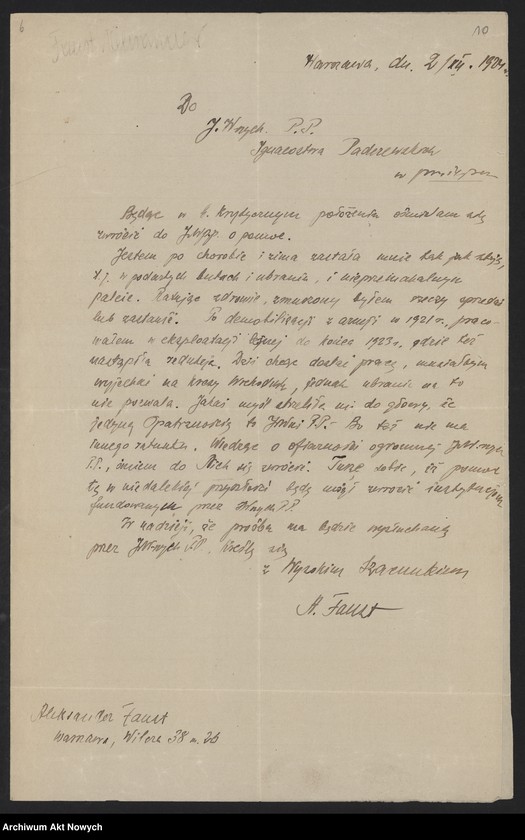 6
10
Warszawa, dn. 2/XII. 1924 r.
Do
J. Wnych. P.P.
Ignacostwa Paderewskich
w
Będąc w b. krytycznym położeniu ośmielam się
zwrócić do JWPP. o pomoc.
Jestem po chorobie i zima zastała mnie tak jak stoję,
t.j. w podartych butach i ubraniu, i nieprzemakalnym
palcie. Ratując zdrowie, zmuszony byłem rzeczy sprzedać
lub zastawić. Po demobilizacji z armji w 1921 r., praco-
wałem w eksploatacji leśnej do końca 1923 r., gdzie też
nastąpiła redukcja. Dziś chcąc dostać pracę, musiałbym
wyjechać na kresy Wschodnie, jednak ubranie na to
nie pozwala. Jakaś myśl strzeliła mi do głowy, że
jedyną Opatrznością to JWni P.P. - Bo też nie ma
innego ratunku. Wiedząc o ofiarności ogromnej JWnych
P.P., śmiem do Nich się zwrócić. Tuszę sobie, iż pomoc
tę w niedalekiej przyszłości będę mógł zwrócić instytucjom
fundowanych przez Wnych P.P
W nadzieji, że prośba ma będzie wysłuchaną
przez JWnych P.P. kreślę się
z Wysokim Szacunkiem
A. Faust
Aleksander Faust
Warszawa, Wilcza 38 m. 26
Archiwum Akt Nowych